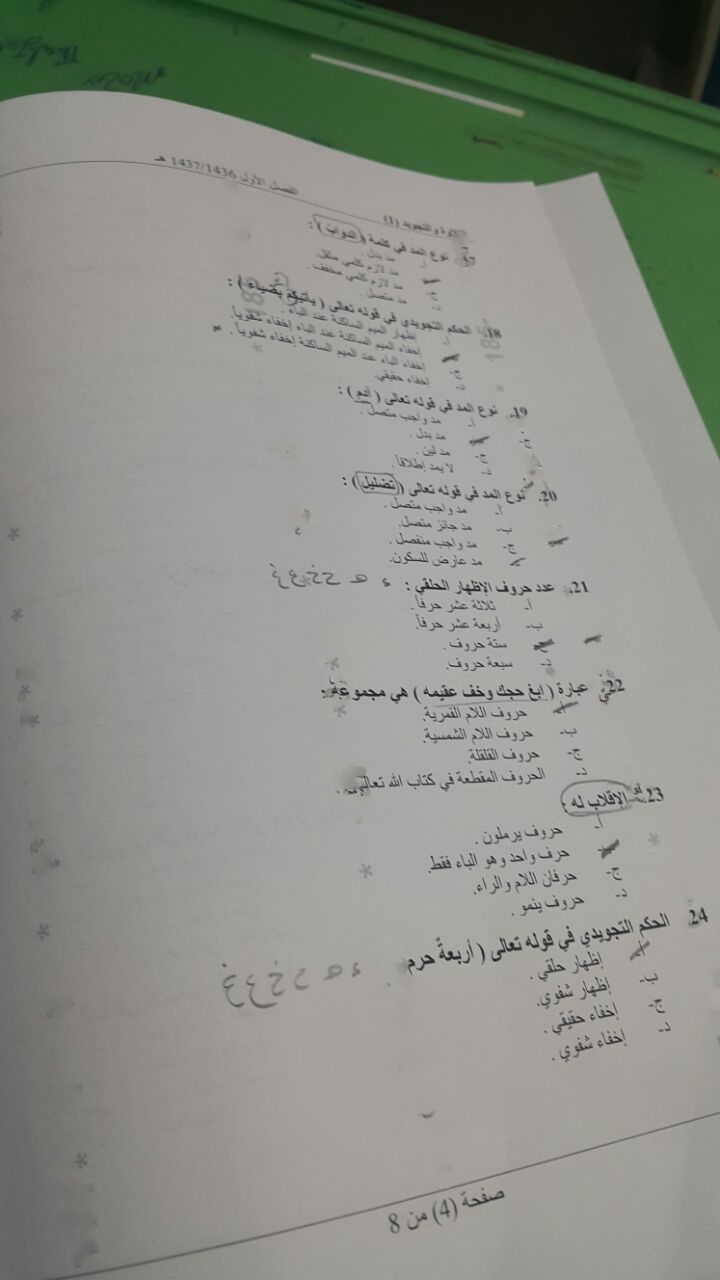 الفصل الأول 1437/1436 هـ
والتجويد (1)
17. نوع المد في كلمة ( الدواب ) :
أ- مد بدل .
مد لازم كلمي مثقل.
ج- مد لازم كلمي مخفف .
د- مد متصل .
18. الحكم التجويدي في قوله تعالى ( يأتيكم بضياء ) :
أ- إظهار الميم الساكنة عند الباء .
إخفاء الميم الساكنة عند الباء إخفاء شفوياً.
ج- إخفاء الباء عند الميم الساكنة إخفاء شفوياً .
د- إخفاء حقيقي.
19. نوع المد في قوله تعالى ( آدم ) :
أ- مد واجب متصل .
مد بدل .
ج- مد لين .
د- لا يمد إطلاقاً .
20. نوع المد في قوله تعالى ( تضليل ) :
أ- مد واجب متصل .
ب- مد جائز متصل.
ج- مد واجب منفصل .
مد عارض للسكون.
21. عدد حروف الإظهار الحلقي : ء هـ ح خ ع غ
أ- ثلاثة عشر حرفاً .
ب- أربعة عشر حرفاً.
ستة حروف .
د- سبعة حروف.
22. عبارة ( ابغ حجك وخف عقيمه ) هي مجموعة :
أ- حروف اللام القمرية.
ب- حروف اللام الشمسية.
ج- حروف القلقلة.
د- الحروف المقطعة في كتاب الله تعالى .
23. الإقلاب له :
أ- حروف يرملون .
حرف واحد وهو الباء فقط.
ج- حرفان اللام والراء.
د- حروف ينمو .
24. الحكم التجويدي في قوله تعالى ( أربعةٌ حرم
أ- إظهار حلقي .
ب- إظهار شفوي.
ج- إخفاء حقيقي .
د- إخفاء شفوي .
صفحة (4) من 8